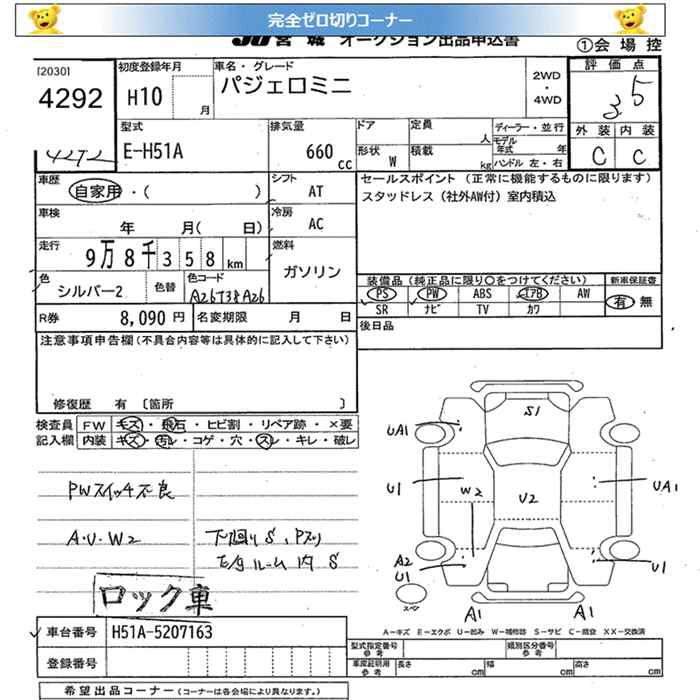 完全ゼロ切りコーナー
JU 宮城 オークション出品申込書
①会場控
[2030]
4292
4272
初度登録年月
H10 月
車名・グレード
パジェロミニ
2WD
・
4WD
評価点
3.5
外装 内装
C C
型式
E-H51A
排気量
660 cc
ドア
形状 W
定員 人
積載 kg
ディーラー・並行
モデル年式 年
ハンドル 左・右
車歴
自家用・( )
シフト
AT
車検
年 月( 日)
冷房
AC
走行
9万8千358 km
燃料
ガソリン
色
シルバー2
色替
色コード
A26T38A26
R券 8,090 円
名変期限 月 日
セールスポイント (正常に機能するものに限ります)
スタッドレス(社外AW付)室内積込
装備品(純正品に限り○をつけてください)
PS PW ABS エアB AW
SR ナビ TV カワ
新車保証書
有 無
後日品
注意事項申告欄(不具合内容等は具体的に記入して下さい)
修復歴 有 〔箇所 〕
検査員記入欄
FW キズ・飛石・ヒビ割・リペア跡・×要
内装 キズ・汚レ・コゲ・穴・スレ・キレ・破レ
PWスイッチ不良
A・U・W2
下廻りS、Pズリ
E/gルーム内S
ロック車
車台番号 H51A-5207163
登録番号
S1
UA1
U1
W2
U2
UA1
A2
U1
U1
スペア
A1
A1
A-キズ E-エクボ U-凹み W-補修跡 S-サビ C-腐食 XX-交換済
型式指定番号 参考
類別区分番号 参考
車庫証明用 参考
長さ cm 幅 cm 高さ cm
希望出品コーナー(コーナーは各会場により異なります。)